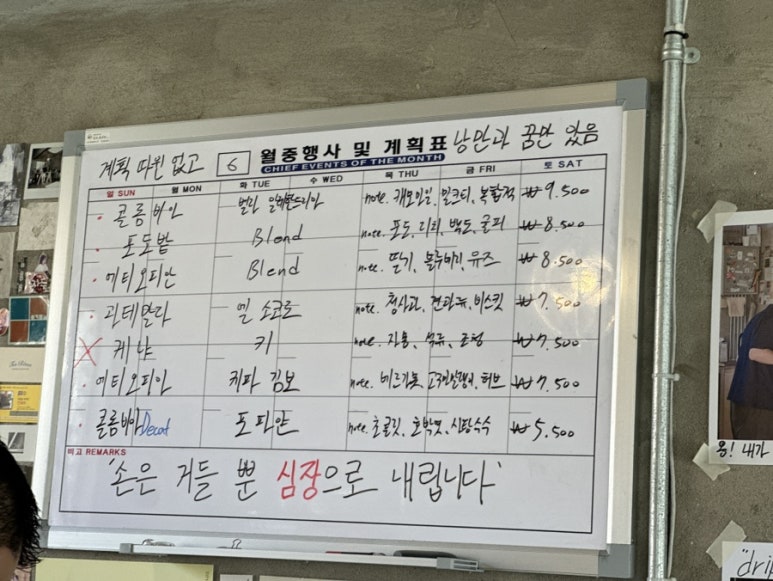 계획 따윈 없고 6 월중행사 및 계획표 낭만과 꿈만 있음
CHIEF EVENTS OF THE MONTH
일 SUN 월 MON 화 TUE 수 WED 목 THU 금 FRI 토 SAT
콜롬비아 note. 캐모마일, 밀크티, 복합적 ₩9.500
포도밭 Blend note. 포도, 리치, 백도, 귤피 ₩8.500
에티오피안 Blend note. 딸기, 블루베리, 유즈 ₩8.500
과테말라 엘 소코로 note. 청사과, 비스킷 ₩7.500
케냐 키 note. 자몽, 석류, 조청 ₩7.500
에티오피아 케파 김보 note. 베르가못, 허브 ₩7.500
콜롬비아 Decaf 포파얀 note. 초콜릿, 호박엿, 사탕수수 ₩5.500
비고 REMARKS
'손은 거들 뿐 심장으로 내립니다'
옹! 내가
"drip